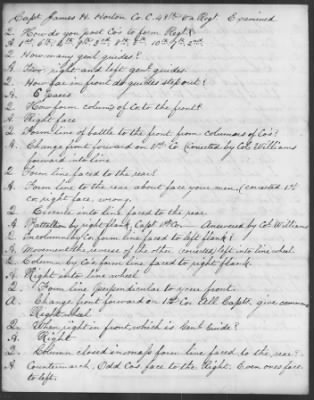 Capt James H. Horton Co. C. 48th Va Regt Examined
2. How do you post Co's to form Regt?
A 1st, 6th, 4th, 9th, 3rd, 8th, 5th, 10th, 7th, 2nd.
2. How many genl guides?
A Two, right and left genl guides.
2. How far in front do guides step out?
A 6 paces
2. How form column of Co to the front?
A Right face
2. Form line of battle to the front from column of Co's?
A. Change front forward on 1st Co (corrected by Col Williams
forward into line
2. Form line faced to the rear?
A Form line to the rear about face your men, (corrected 1st
co right face, wrong.
2 Execute into line faced to the rear
A Battalion by right flank, Capt 1st Co. — Answered by Col Williams
2. In column by Co, form line faced to left flank?
A. Movement the reverse of the other (corrected) left into line wheel
2. Column by Co's form line faced to right flank.
A Right into line wheel
2. Form line perpendicular to your front.
A. Change front forward on 1st Co. All Capts, give command
Right wheel
2. When right in front, which is Genl Guide?
A. Right
2. Column closed in mass form line faced to the rear?
A Countermarch, Odd Co's face to the Right, Even ones face
to left.